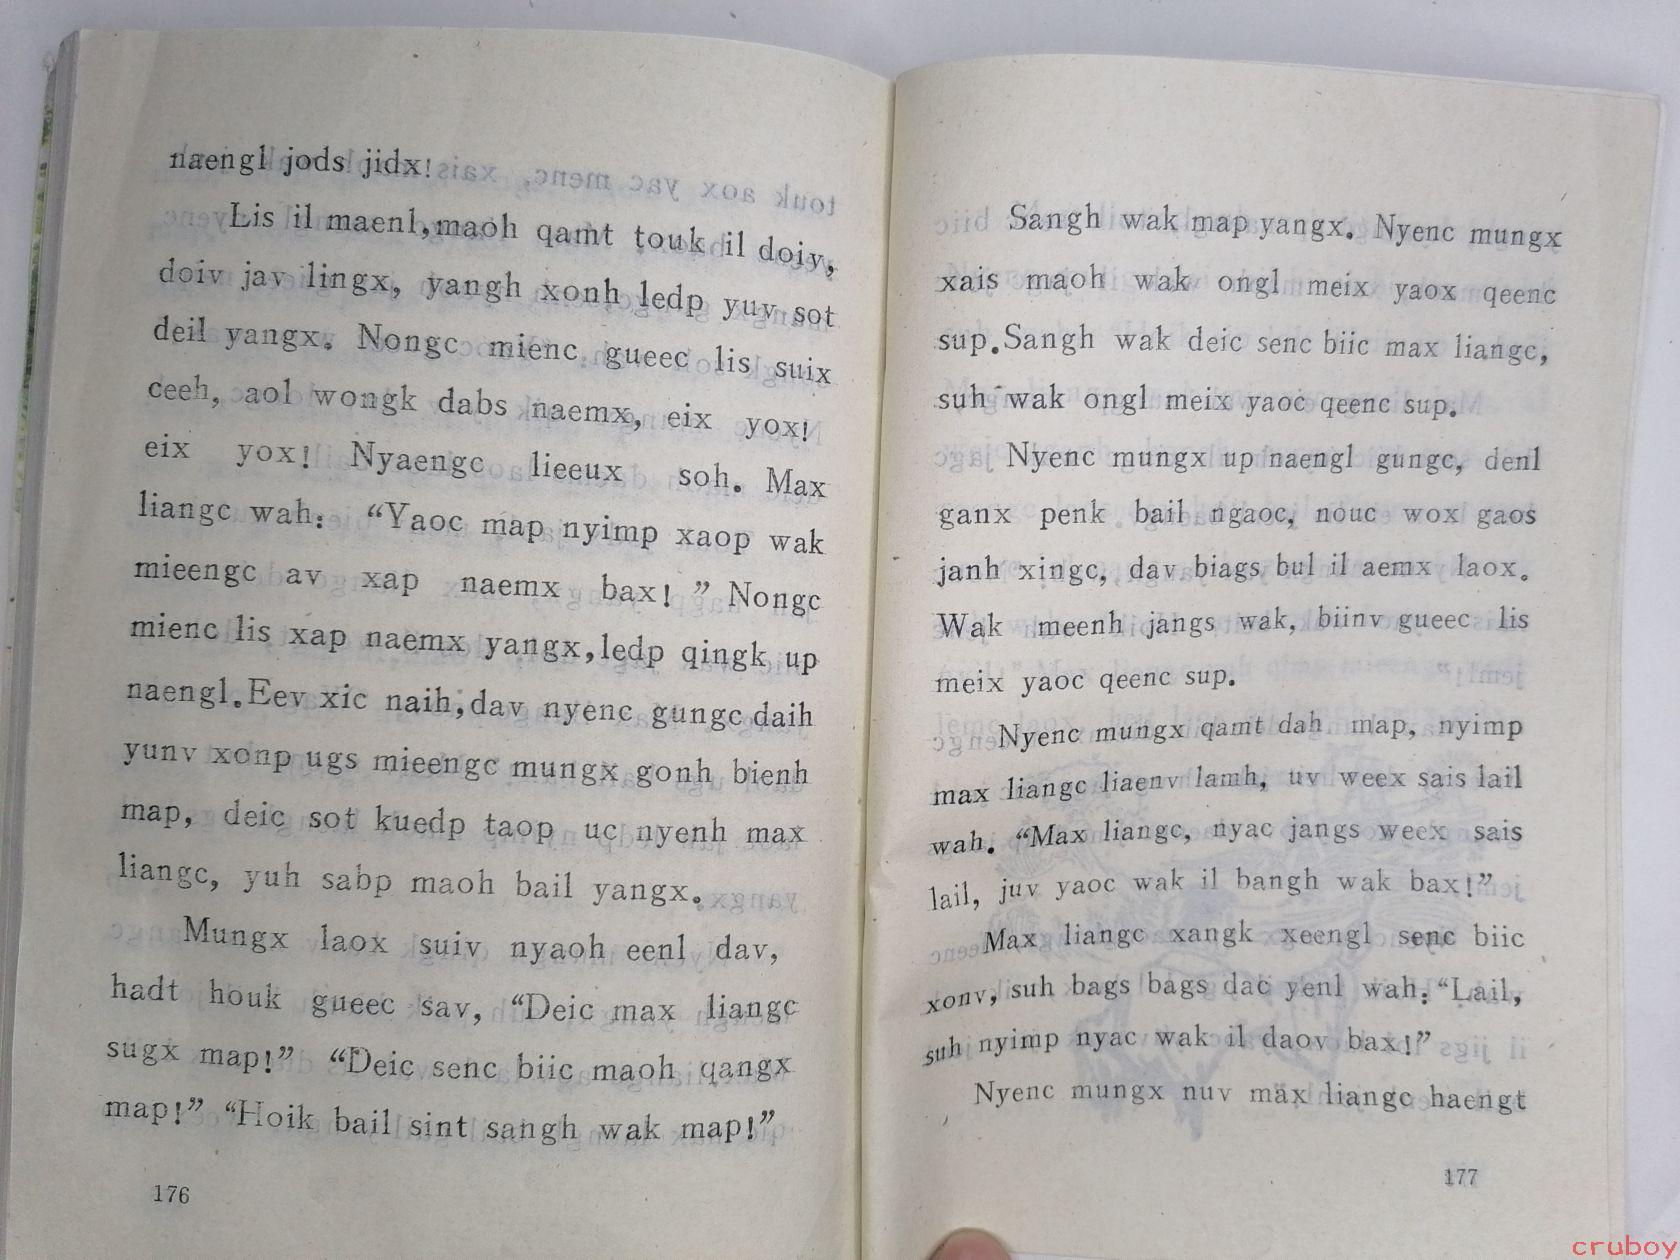 naengl jods jidx!
Lis il maenl,maoh qamt touk il doiv,
doiv jav lingx, yangh xonh ledp yuv sot
deil yangx. Nongc mienc gueec lis suix
ceeh, aol wongk dabs naemx, eix yox!
eix yox! Nyaengc lieeux soh. Max
liangc wah: “Yaoc map nyimp xaop wak
mieengc av xap naemx bax!” Nongc
mienc lis xap naemx yangx,ledp qingk up
naengl.Eev xic naih,dav nyenc gungc daih
yunv xonp ugs mieengc mungx gonh bienh
map, deic sot kuedp taop uc nyenh max
liangc, yuh sabp maoh bail yangx.
Mungx laox suiv nyaoh eenl dav,
hadt houk gueec sav, “Deic max liangc
sugx map!” “Deic senc biic maoh qangx
map!” “Hoik bail sint sangh wak map!”
176
Sangh wak map yangx. Nyenc mungx
xais maoh wak ongl meix yaox qeenc
sup.Sangh wak deic senc biic max liangc,
suh wak ongl meix yaoc qeenc sup.
Nyenc mungx up naengl gungc, denl
ganx penk bail ngaoc, nouc wox gaos
janh xingc, dav biags bul il aemx laox.
Wak meenh jangs wak, biinv gueec lis
meix yaoc qeenc sup.
Nyenc mungx qamt dah map, nyimp
max liangc liaenv lamh, uv weex sais lail
wah. “Max liangc, nyac jangs weex sais
lail, juv yaoc wak il bangh wak bax!”
Max liangc xangk xeengl senc biic
xonv, suh bags bags dac yenl wah:“Lail,
suh nyimp nyac wak il daov bax!”
Nyenc mungx nuv max liangc haengt
177
cruboy